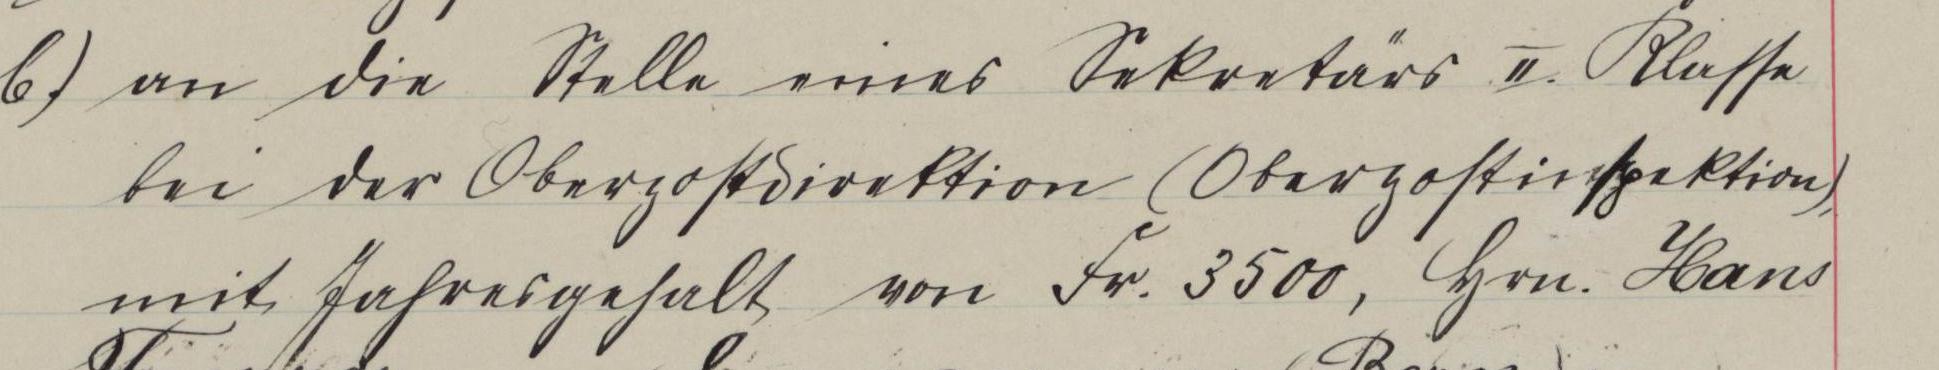 b) an die Stelle eines Sekretärs II. Klasse
bei der Oberpostdirektion (Oberpostinspektion),
mit Jahresgehalt von Fr. 3500, Hrn. Hans